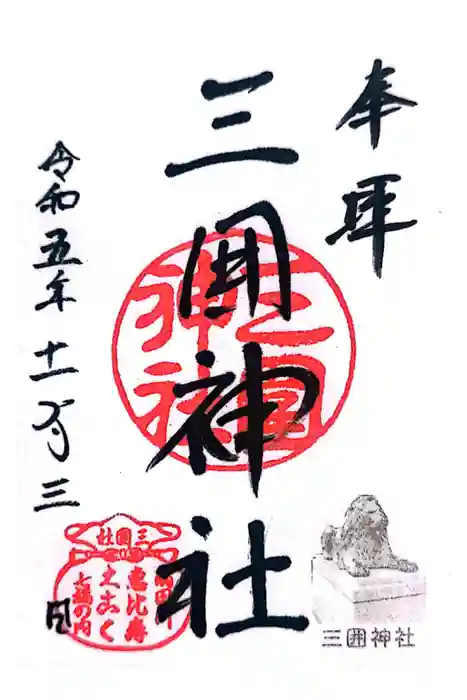 奉拝
三囲神社
三囲神社
令和五年十一月三日
三囲社
隅田川
七福の内
恵比寿
大こく
三囲神社